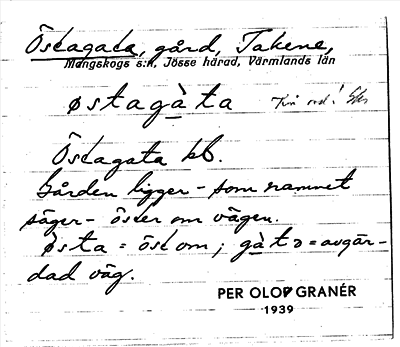 Östagata, gård, Takene,
Mangskogs s:n, Jösse härad, Värmlands län
østagàta
Östagata kb.
Gården ligger - som namnet
säger - öster om vägen.
østa = öst om; gàtɔ = avgär-
dad väg.
PER OLOF GRANÉR
1939